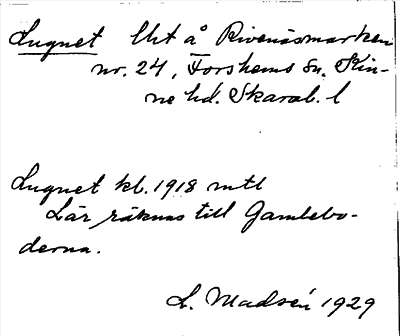 Lugnet lht å Rivenäsmarken
nr. 24, Forshems sn, Kin-
ne hd. Skarab. l
Lugnet kb. 1918 mtl
Lär räknas till Gamlebo-
derna.
L. Madsén 1929